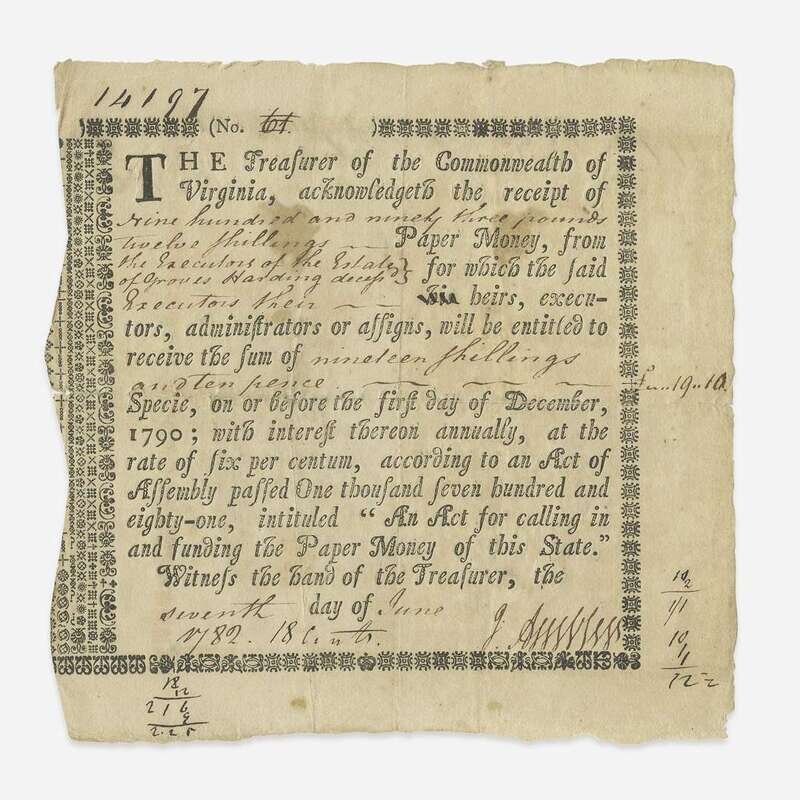 14197
(No. )
THE Treaſurer of the Commonwealth of
Virginia, acknowledgeth the receipt of
Nine hundred and ninety three pounds
twelve ſhillings — Paper Money, from
the Executors of the Estate
of Groves Harding decesd } for which the ſaid
Executors their — heirs, execu-
tors, adminiſtrators or aſſigns, will be entitled to
receive the ſum of nineteen ſhillings
and ten pence — — — —
19 10
Specie, on or before the firſt day of December,
1790; with intereſt thereon annually, at the
rate of ſix per centum, according to an Act of
Aſſembly paſſed One thouſand ſeven hundred and
eighty-one, intituled “ An Act for calling in
and funding the Paper Money of this State.”
Witneſs the hand of the Treaſurer, the
seventh day of June
1782. 18 Cents J. Ambler
18
12
2 1 6
9
2.2 5
10